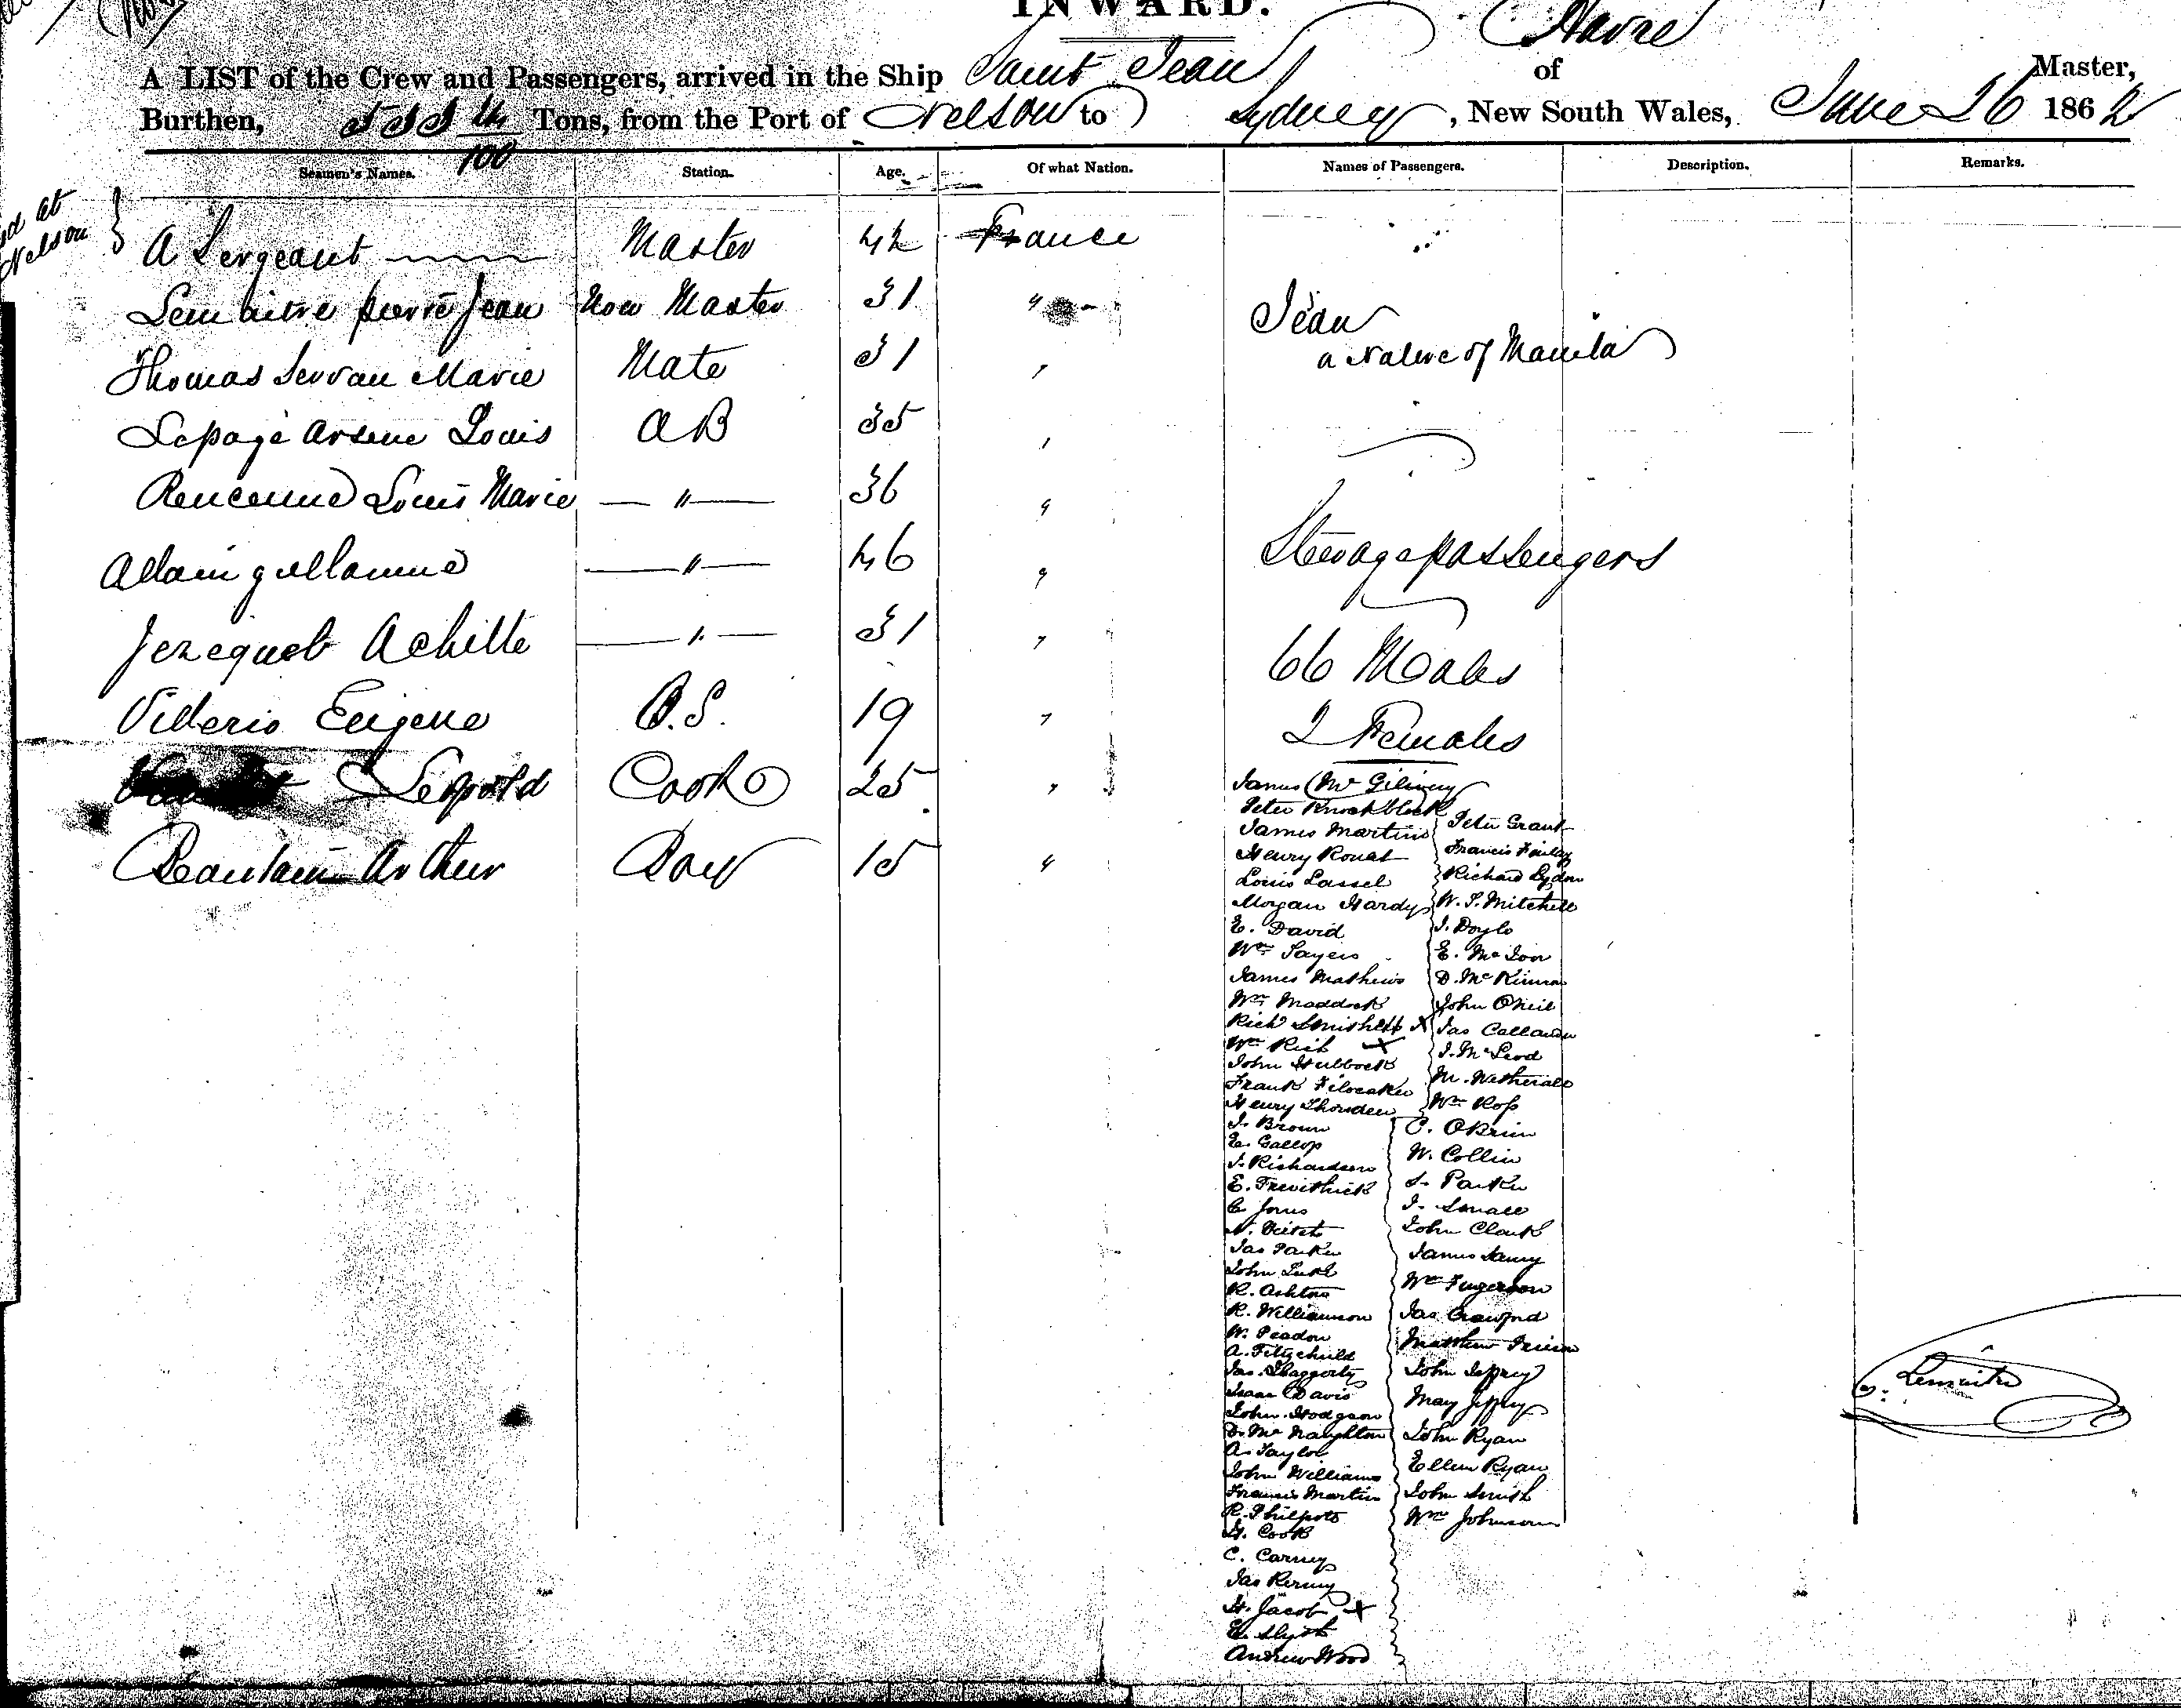 INWARD.
A LIST of the Crew and Passengers, arrived in the Ship Saint Jean of Havre Master,
Burthen, Tons, from the Port of Nelson to Sydney, New South Wales, June 26 1862
100
Seamen's Names. Station. Age. Of what Nation. Names of Passengers. Description. Remarks.
at
Nelson
A Sergeant Master 42 France
Lemaitre pierre Jean Now Master 31 "
Jean
a Native of Manila
Thomas Servan Marie Mate 31 "
Lepage Arsene Louis A B 35 "
Louis Marie — " — 36 "
Allain guillaume — " — 46 "
Steerage passengers
Jezequel Achille — " — 31 "
66 Males
Eugene O.S. 19 "
2 Females
Leopold Cook 25 "
Arthur Boy 15 "
James Mc Gilivray
Peter Knockblock
James Martins
Henry Rouat
Louis Lassel
Morgan Hardy
E. David
Wm Sayers
James Mathews
Wm Maddock
Rich X
Wm Rich X
John Hubbock
Frank
Henry
J. Brown
E. Gallop
J. Richardson
E. Trevithick
C Jones
N. Veitch
Jas Parker
John Luke
R. Ashton
R. Williamson
W. Peadon
A. Fitzchild
Jas. Haggerty
Isaac Davis
John Hodgson
D. Mc Naughton
A. Taylor
John Williams
Francis Martin
R. Philpots
H. Cook
C. Carney
Jas Kerney
H. Jacob X
E.
Andrew Wood
Peter Grant
Francis Finlay
Richard Lydon
W. S. Mitchell
J. Doyle
E. Mc
D. Mc Kinnon
John O'Neil
Jas Callander
J. McLeod
M. Wetherall
Wm Ross
C. OBrien
W. Collin
S. Parker
J. Small
John Clark
James
Wm Fugerson
Jas Crawford
Matthew
John Jeffrey
May Jeffrey
John Ryan
Ellen Ryan
John Smith
Wm Johnson
Lemaitre